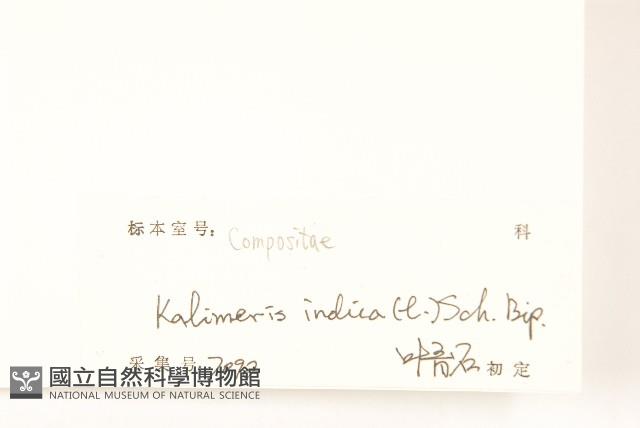 标本室号: Compositae 科
Kalimeris indica (L.) Sch. Bip.
采集号 初定
國立自然科學博物館
NATIONAL MUSEUM OF NATURAL SCIENCE